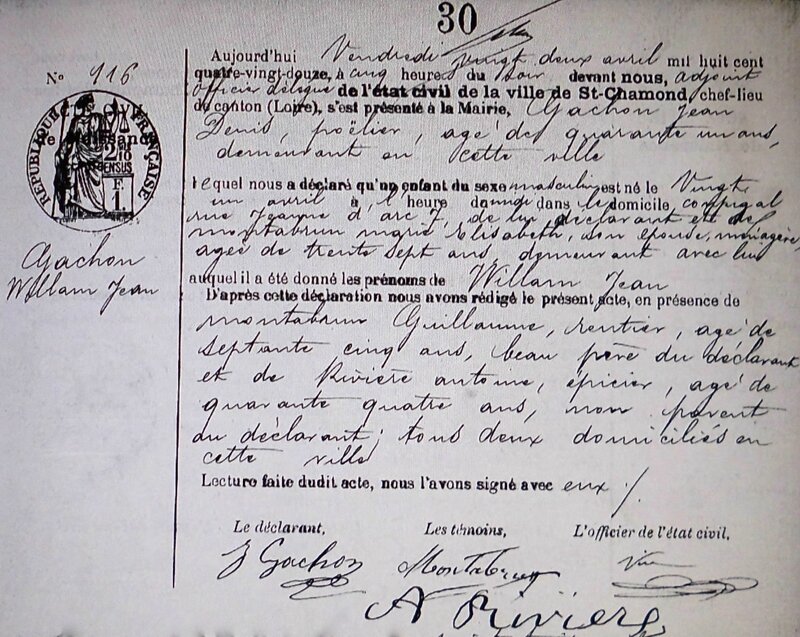 30
Nº 116
Aujourd'hui Vendredi vingt deux avril mil huit cent
quatre-vingt-douze, à cinq heures du soir devant nous, adjoint
officier délégué de l'état civil de la ville de St-Chamond, chef-lieu
de canton (Loire), s'est présenté à la Mairie, Gachon Jean
Denis, poëlier, agé de quarante un ans,
demeurant en cette ville
lequel nous a déclaré qu'un enfant du sexe masculin est né le Vingt
un avril à l'heure de midi dans le domicile, conjugal
rue Jeanne d'arc 7, de lui déclarant et de
montabrun marie Elisabeth, son épouse, ménagère,
agée de trente sept ans, demeurant avec lui
auquel il a été donné les prénoms de Willam Jean
D'après cette déclaration nous avons rédigé le présent acte, en présence de
montabrun Guillaume, rentier, agé de
septante cinq ans, beau père du déclarant
et de Rivière antoine, épicier, agé de
quarante quatre ans, non parent
au déclarant; tous deux domiciliés en
cette ville
Lecture faite dudit acte, nous l'avons signé avec eux
Le déclarant, Les témoins, L'officier de l'état civil,
J Gachon Montabrun
A Rivière
RÉPUBLIQUE FRANÇAISE
2/10 EN SUS
F. 1
Gachon
Willam Jean